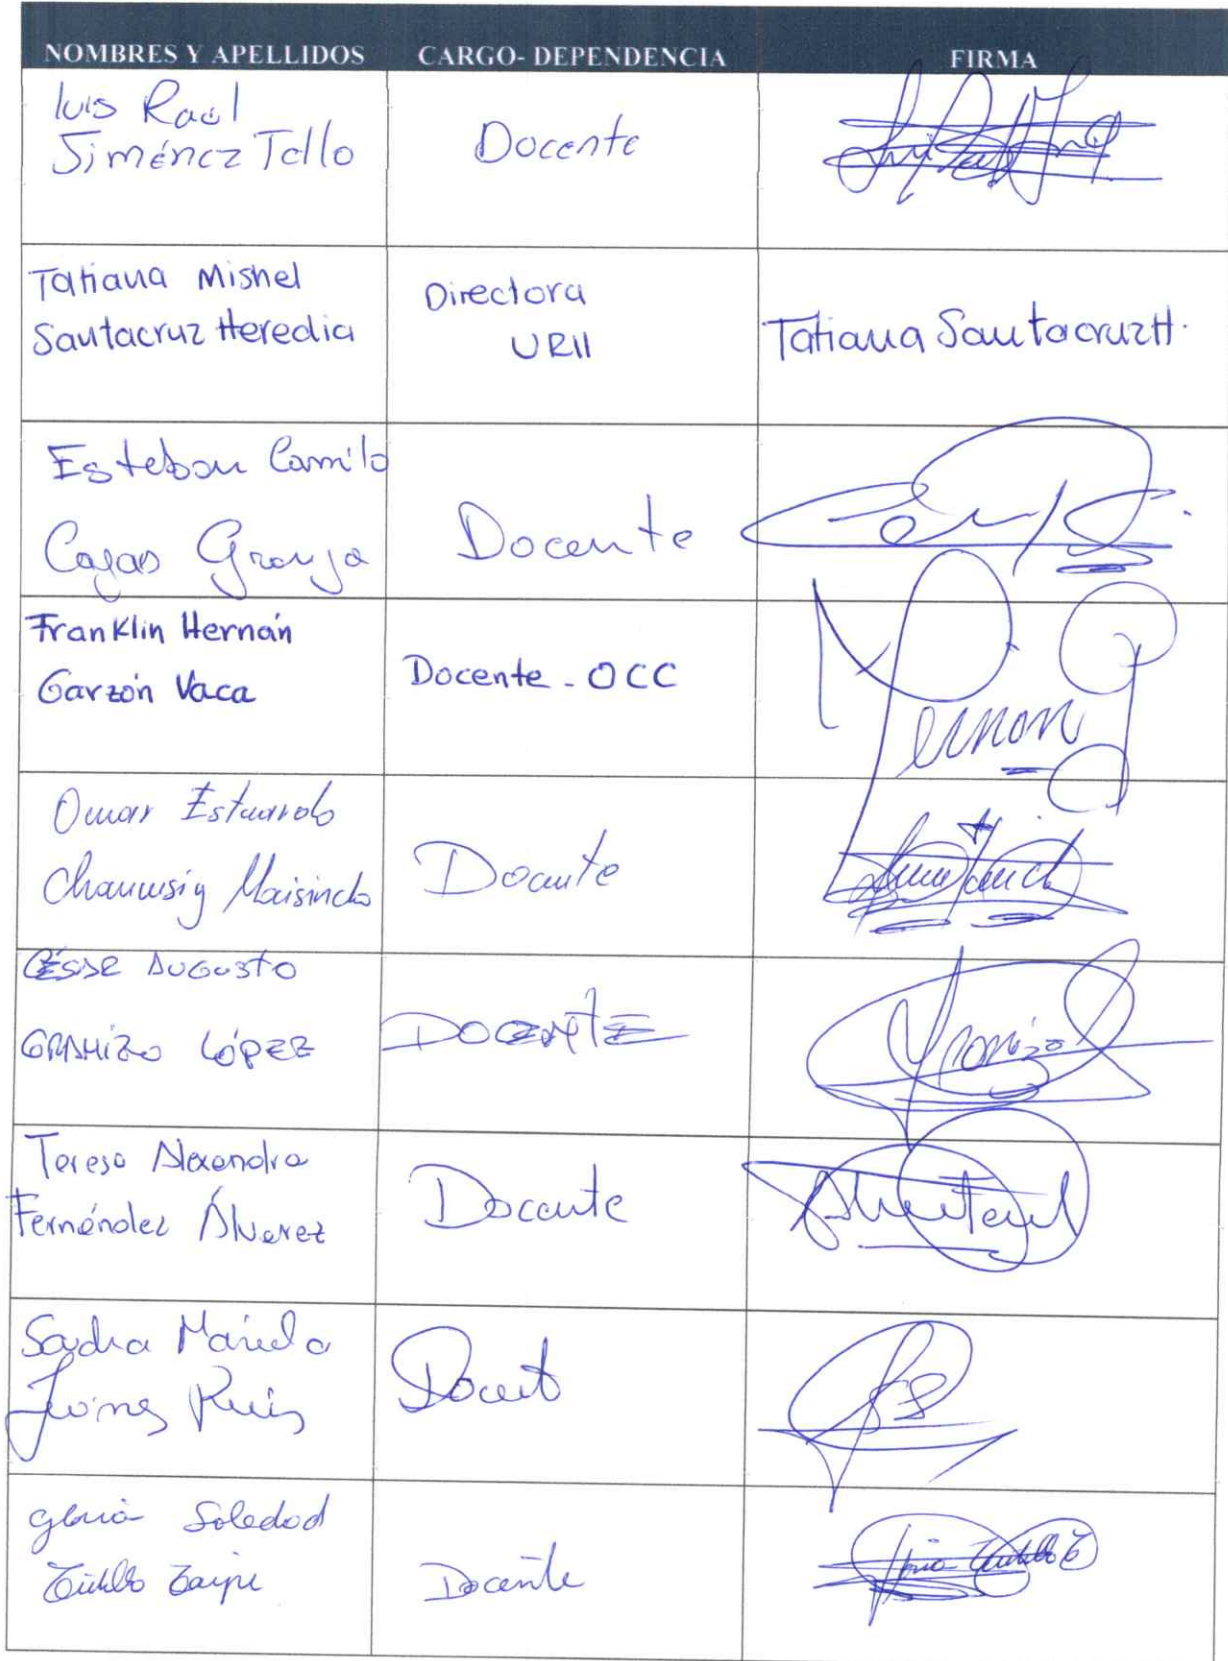 NOMBRES Y APELLIDOS CARGO- DEPENDENCIA FIRMA
luis Raúl
Jiménez Tello
Docente
Tatiana Mishel
Santacruz Heredia
Directora
URII
Tatiana Santacruz H.
Esteban Camilo
Cajas Granja
Docente
Franklin Hernán
Garzón Vaca
Docente - OCC
Hernan
Omar Estuardo
Chamusig Maisincho
Docente
CÉSAR AUGUSTO
GRANIZO LÓPEZ
DOCENTE
Granizo
Teresa Alexandra
Fernández Álvarez
Docente
Sandra Mariela
Ruiz
Docente
gloria Soledad
Docente